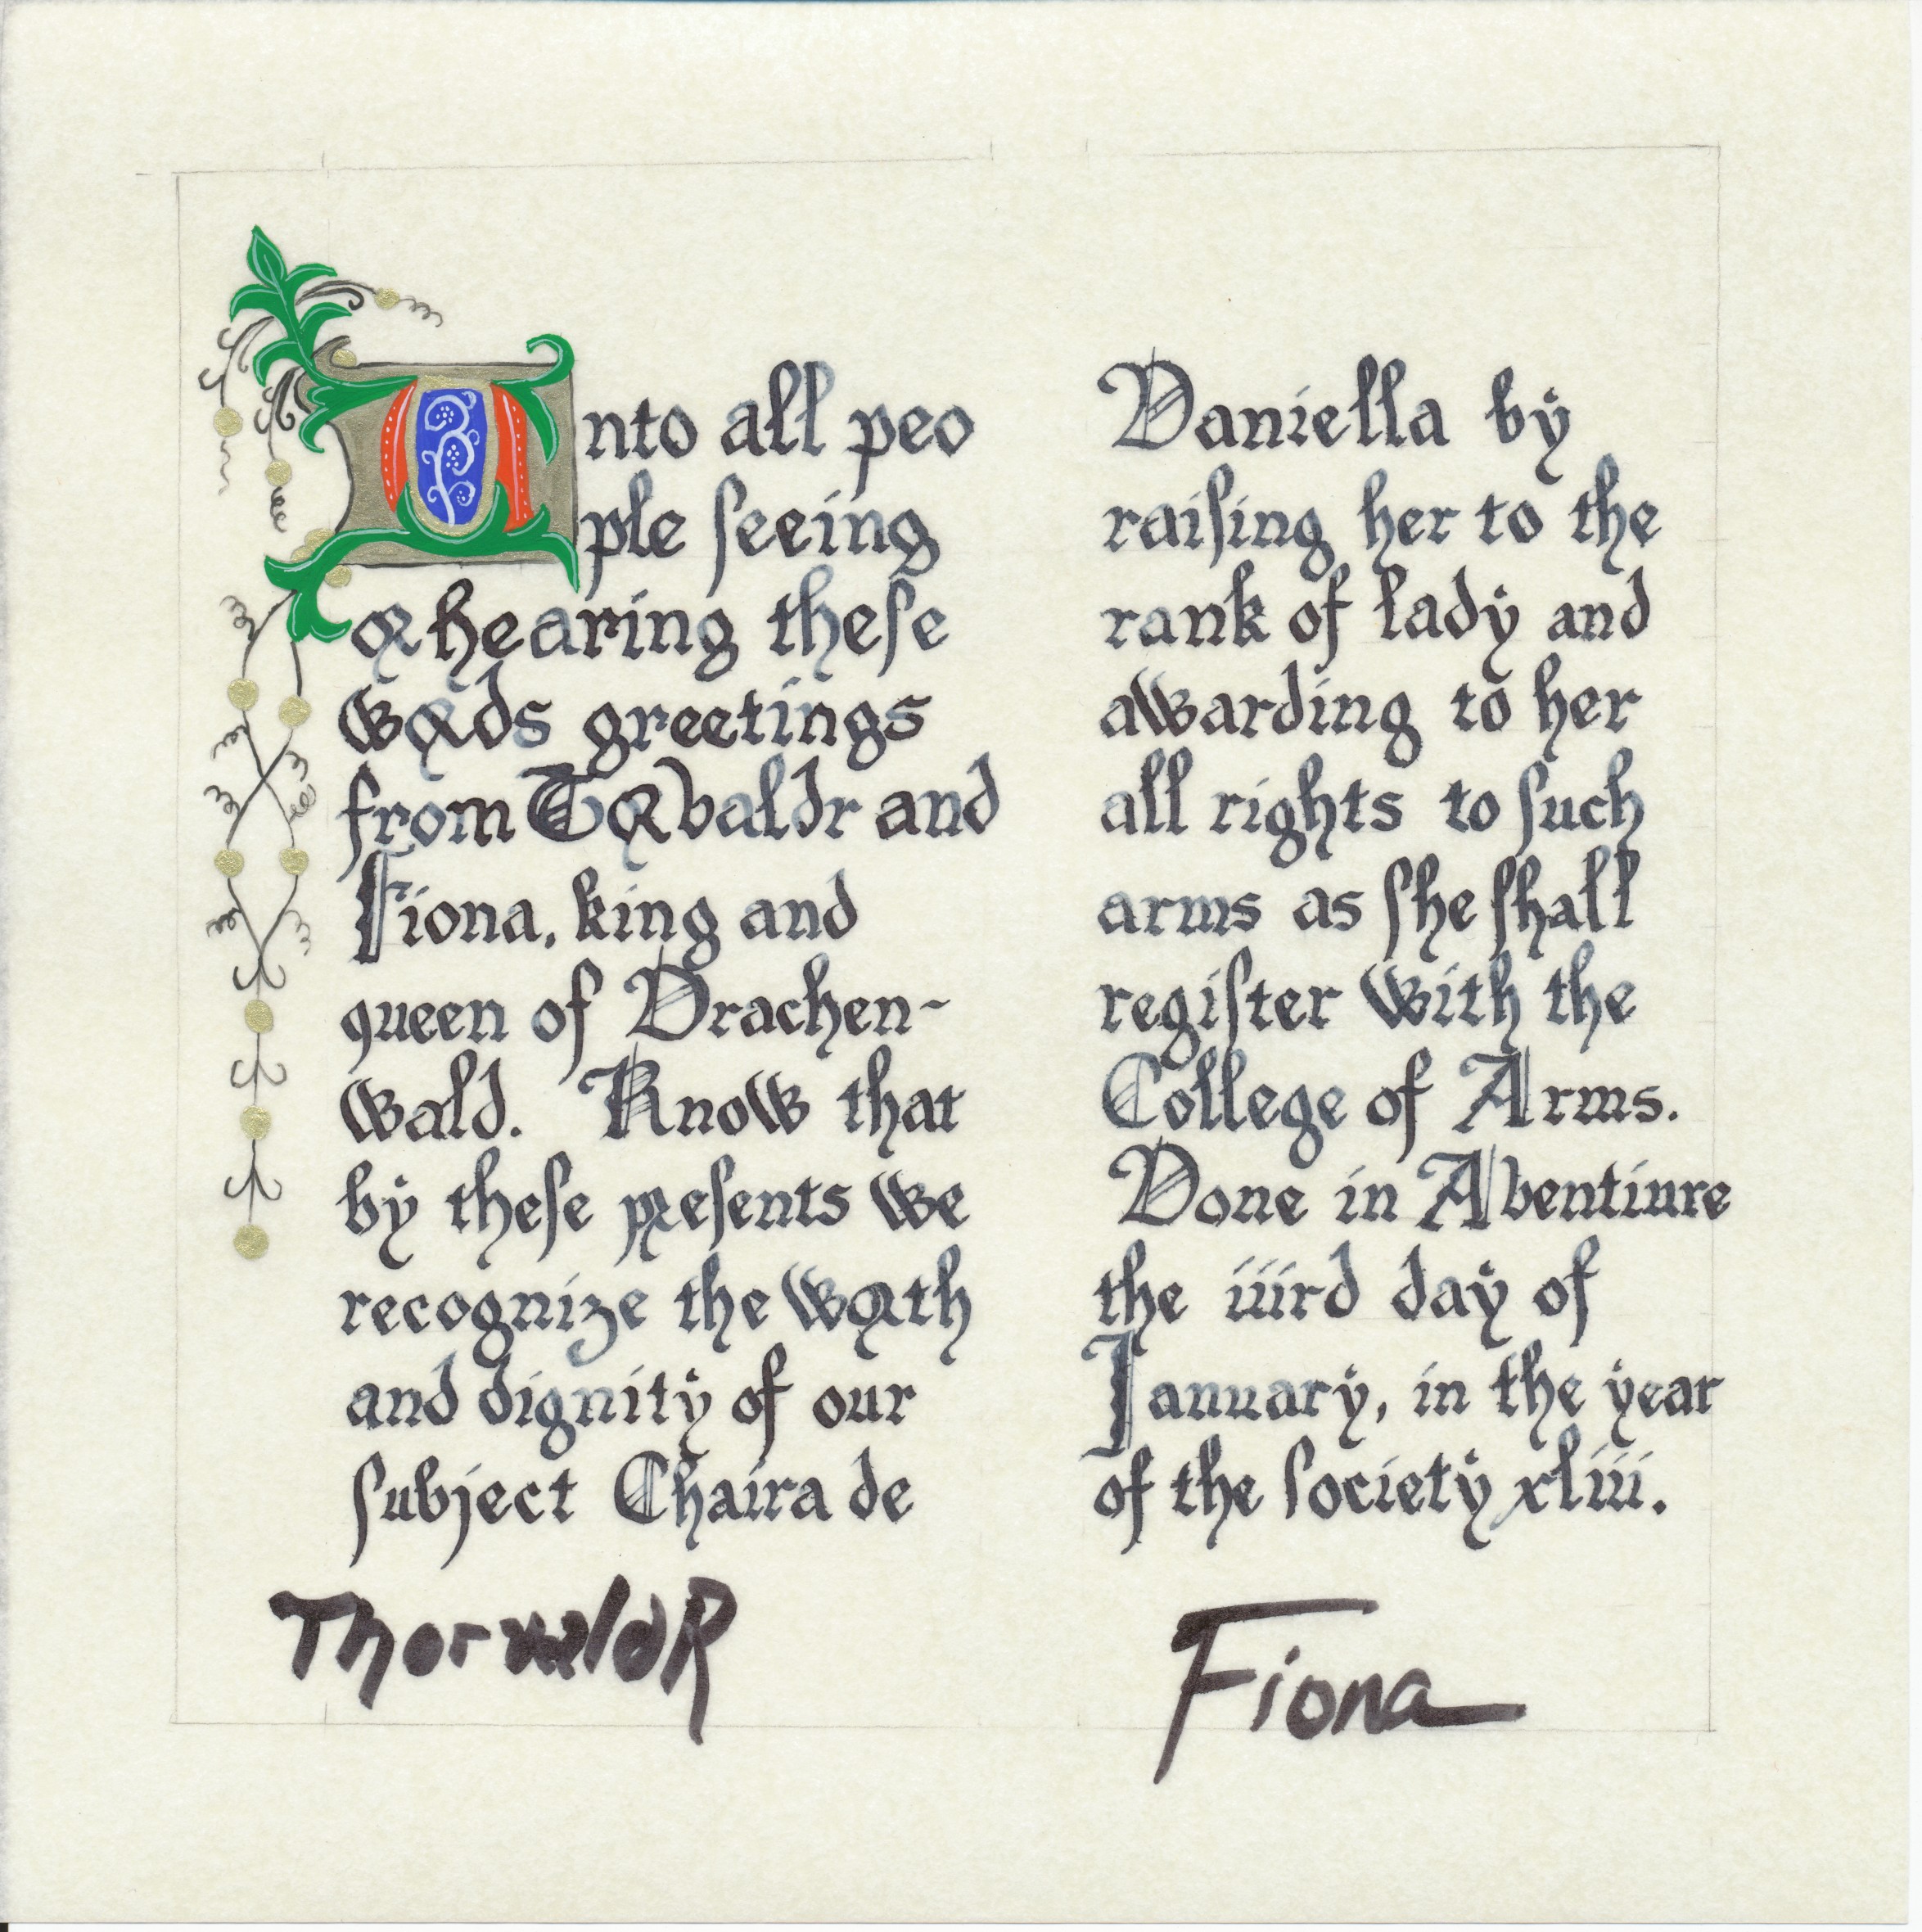 Unto all peo
ple seeing
& hearing these
words greetings
from Torvaldr and
Fiona, king and
queen of Drachen-
wald. Know that
by these presents we
recognize the worth
and dignity of our
subject Chaira de
Daniella by
raising her to the
rank of lady and
awarding to her
all rights to such
arms as she shall
register with the
College of Arms.
Done in Aventiure
the iiird day of
January, in the year
of the society xliii.
ThorvaldR
Fiona